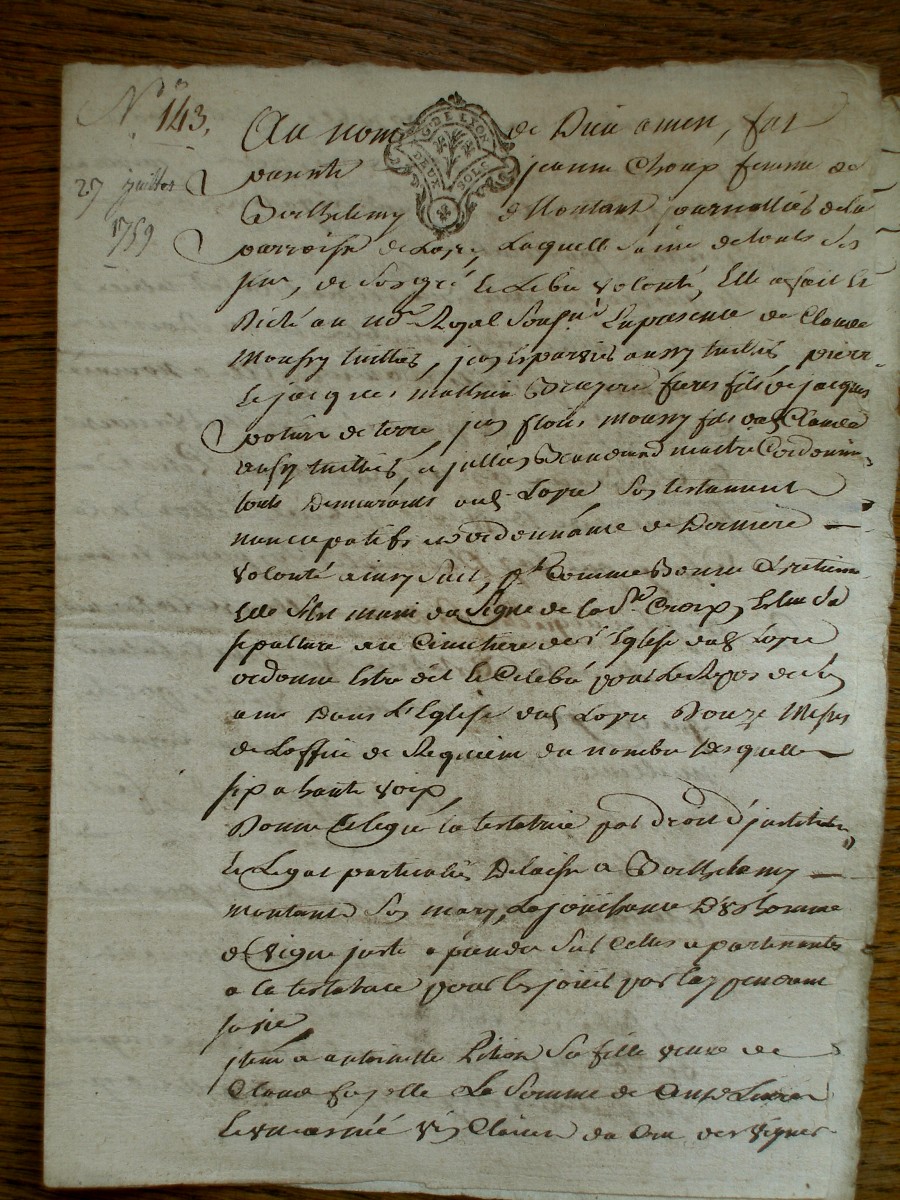 N° 143.
27 juillet
1759
G. DE LYON
DEUX SOLS
Au nom de Dieu amen, fut
presente jeanne Choup femme de
Barthelemy Montant journallier de la
parroisse de Loyre, Laquelle saine de touts ses
sens, de son gré et Libre volonté, Elle a fait et
Dicté au nore Royal soussné En presence de Claude
Moussy tuillier, jean aussy tuillier, pierre
et jacques mathieu freres fils de jacques
potier de terre, jean Moussy fils dud Claude
aussy tuillier, et maitre Cordonnier
touts Demeurants aud Loyre son testament
nuncupatif et ordonnance de Derniere
volonté ainsy suit, pt Comme Bonne Chretienne
Elle s'est muni du Signe de la Ste Croix, Eslu sa
sepulture au Cimetiere de l'Eglise dud Loyre
ordonne Estre dit et Celebré pour Le Repos de son
ame Dans L'Eglise dud Loyre Douze Messes
de L'office de Requiem du nombre desquelles
six a haute voix,
Donne et legue la testatrice par droit d'institution
et Legat particulier Delaisse a Barthelemy
montant son mary, La jouissance D'un homme
de vigne juste a prendre sur Celles apartenantes
a la testatrice pour les joüir par luy pendant
sa vie
jtem a antoinette sa fille veuve de
Claude fayelle La Somme de onze Livres
et une année vin Clairet du Cru des vignes